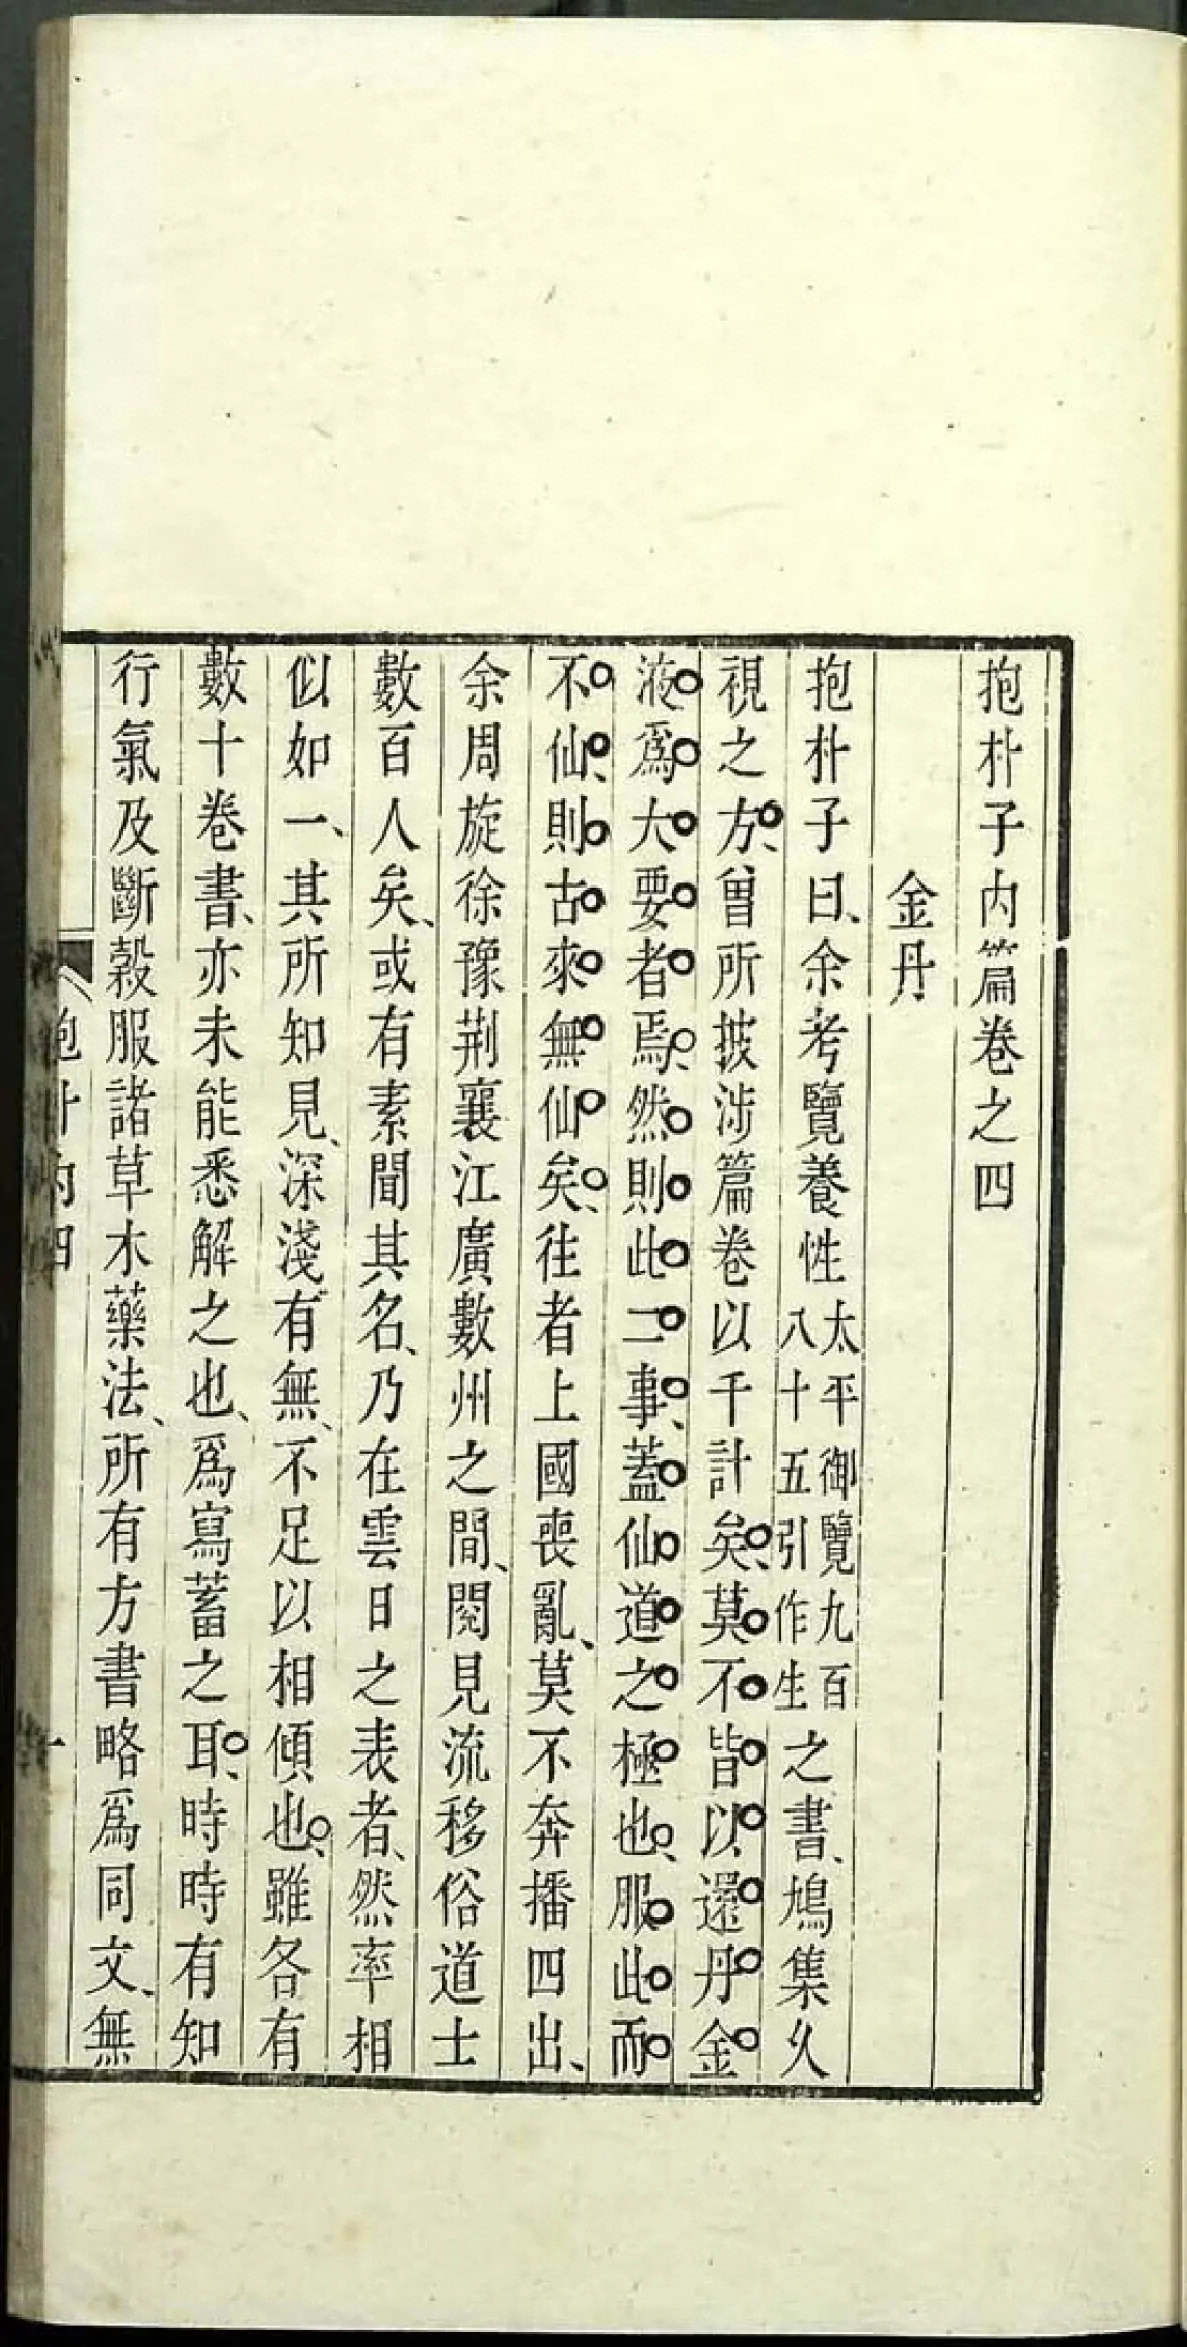 抱朴子内篇卷之四
金丹
抱朴子曰、余考覽養性太平御覽九百八十五引作生之書、鳩集久
視之方、曾所披涉篇卷以千計矣、莫不皆以還丹金
液爲大要者焉、然則此二事、蓋仙道之極也、服此而
不仙、則古來無仙矣、往者上國喪亂、莫不奔播四出、
余周旋徐豫荆襄江廣數州之間、閱見流移俗道士
數百人矣、或有素聞其名、乃在雲日之表者、然率相
似如一、其所知見、深淺有無、不足以相傾也、雖各有
數十卷書、亦未能悉解之也、爲寫蓄之耳、時時有知
行氣及斷穀服諸草木藥法、所有方書略爲同文、無
抱朴内四
一